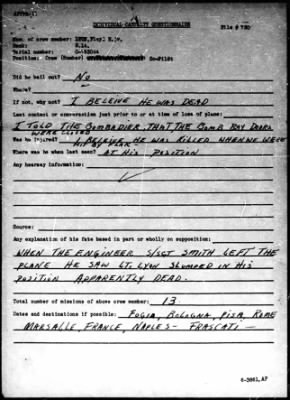 AFPPA-11
INDIVIDUAL CASUALTY QUESTIONNAIRE
File # 750
Name of crew member: LYON, Floyl E.jr.
Rank:
Serial number:
Position: Crew (Number) Co-Pilot
Did he bail out? No
Where?
If not, why not? I BELEIVE HE WAS DEAD
Last contact or conversation just prior to or at time of loss of plane:
I TOLD THE BOMBADIER THAT THE BOMB BAY DOORS
WERE CLOSED
Was he injured? I BELIEVE HE WAS KILLED WHEN WE WERE
HIT BY FLAK -
Where was he when last seen? AT HIS POSITION
Any hearsay information:
Source:
Any explanation of his fate based in part or wholly on supposition:
WHEN THE ENGINEER S/SGT SMITH LEFT THE
PLANE HE SAW LT. LYON SLUMPED IN HIS
POSITION APPARENTLY DEAD.
Total number of missions of above crew member: 13
Dates and destinations if possible: FOGIA, BOLOGNA, PISA, ROME
MARSALLE, FRANCE, NAPLES - FRASCATI -
6-3861, AF